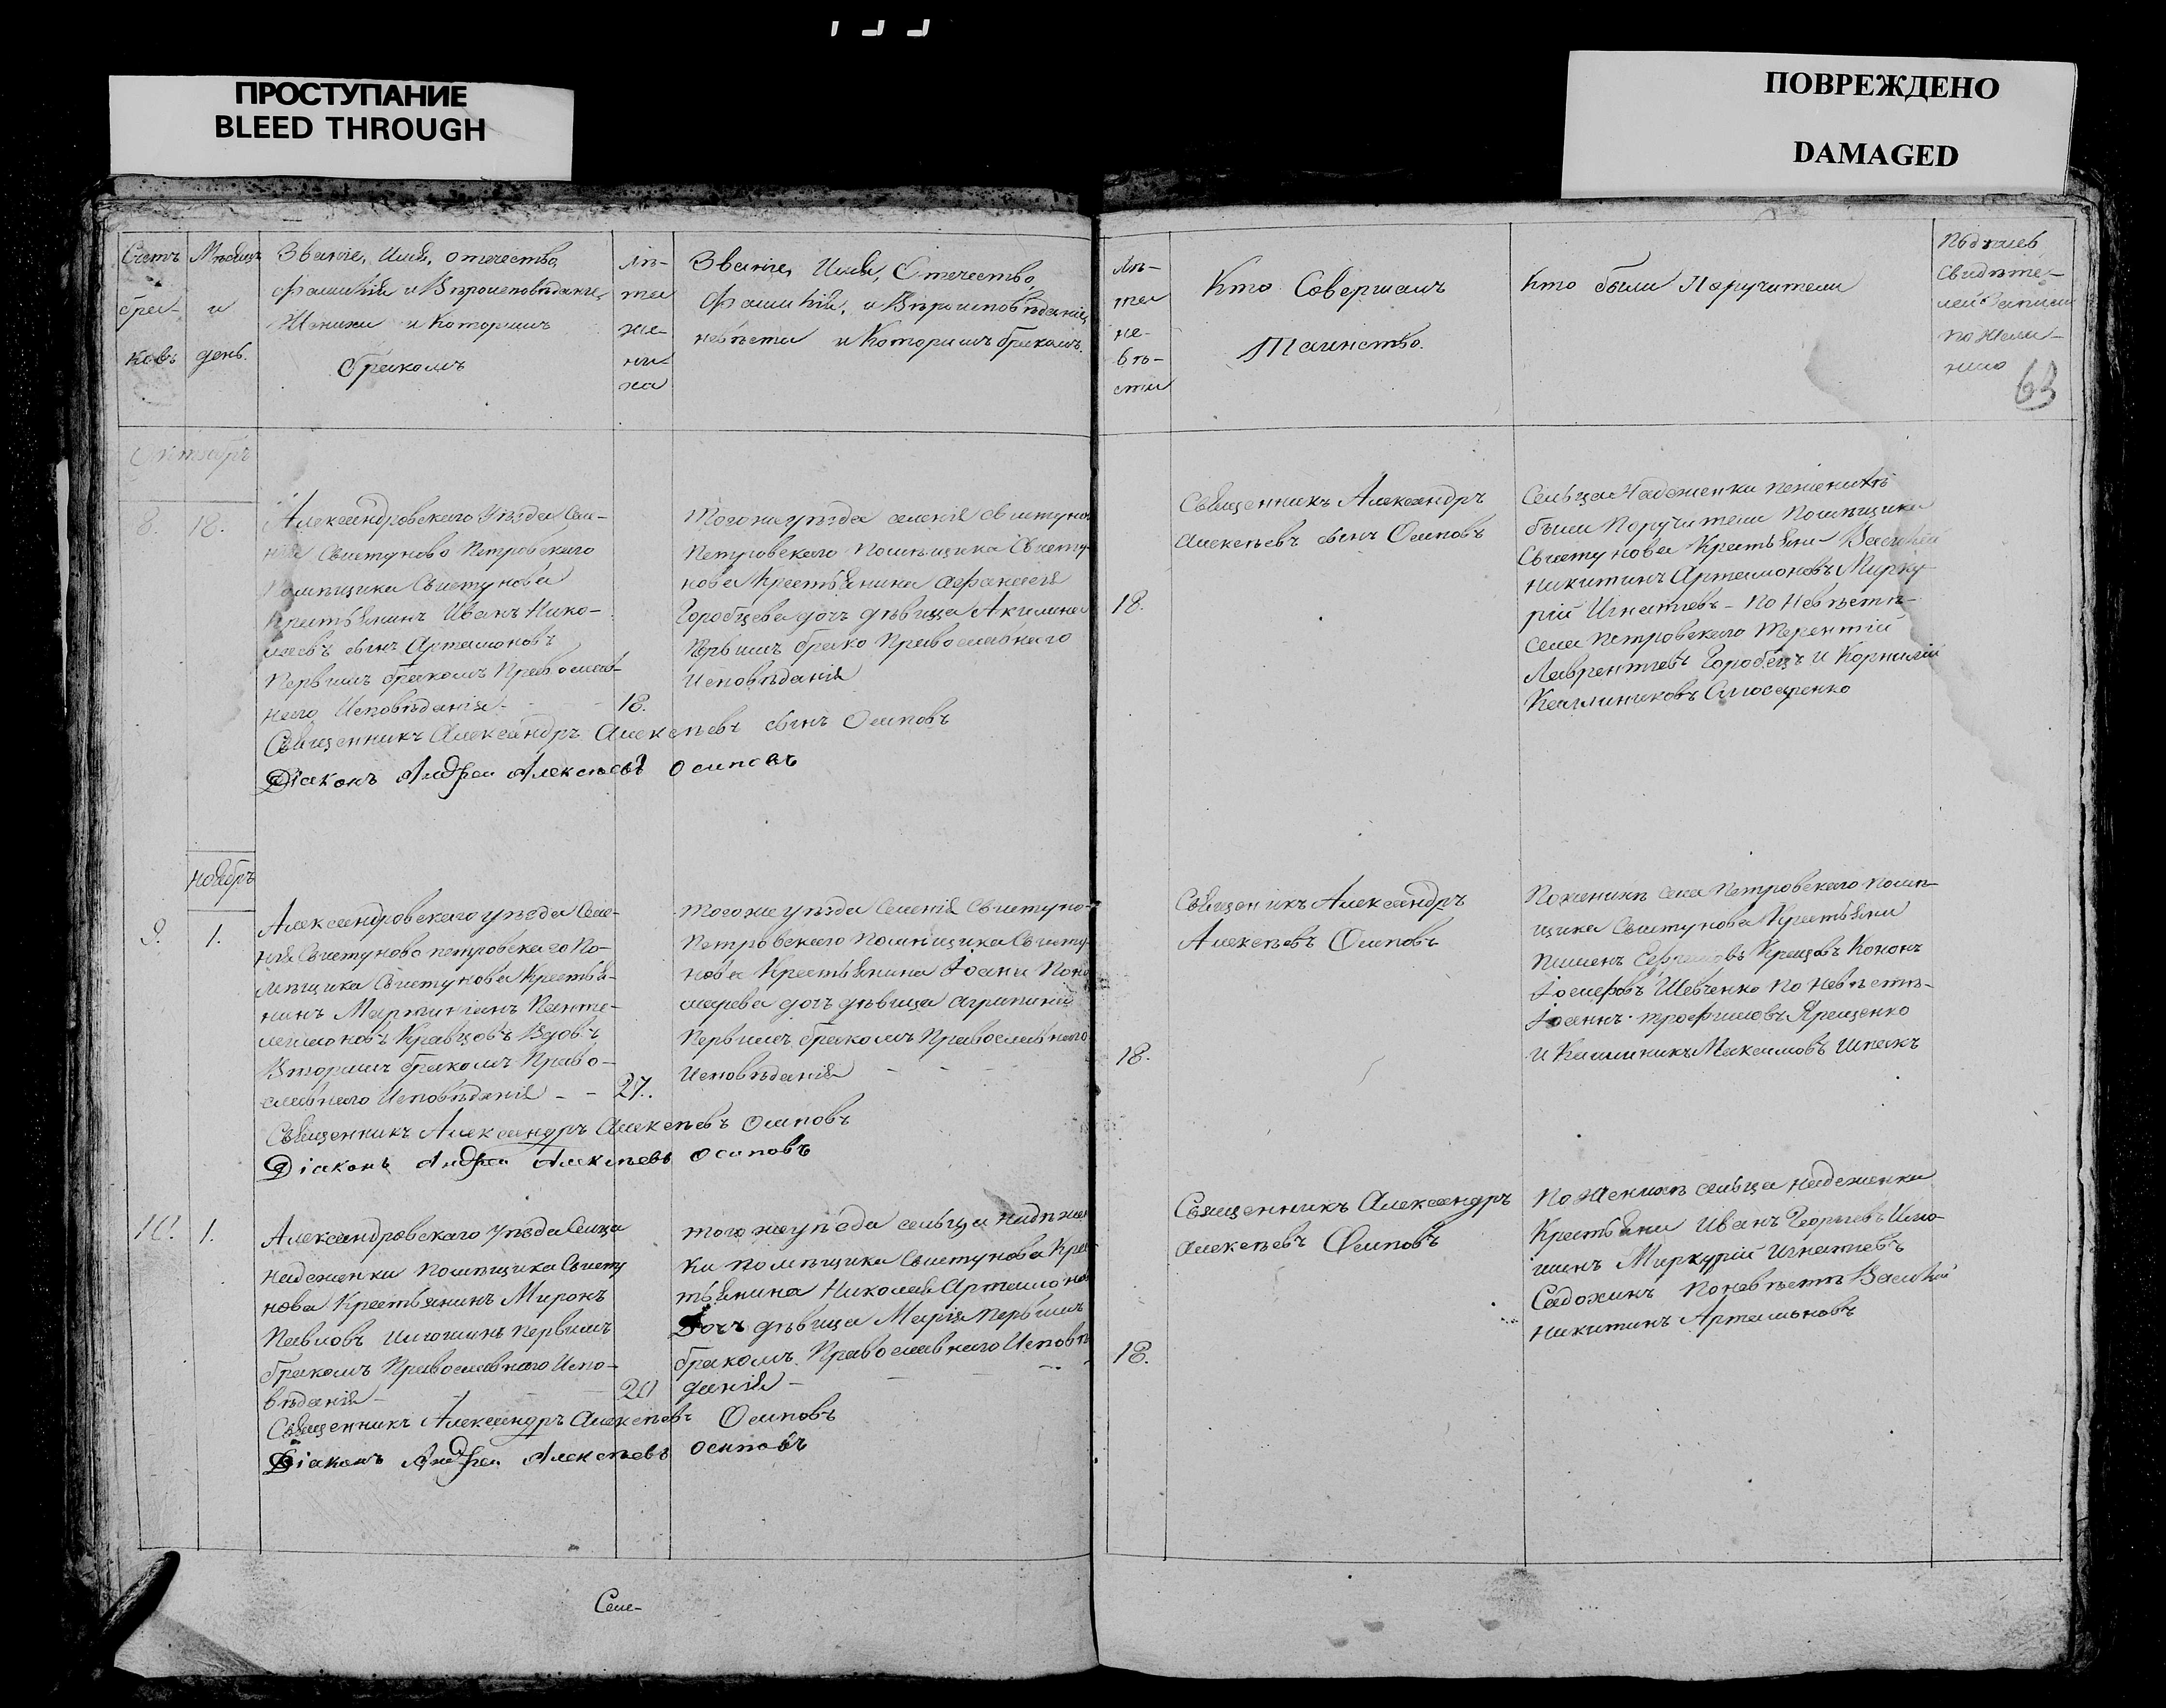 ПРОСТУПАНИЕ
BLEED THROUGH
ПОВРЕЖДЕНО
DAMAGED
Счетъ
брако-
ковъ
Мѣсяцъ
и
день.
Званіе, Имя, отечество,
фамилія и Вѣроисповѣданіе,
Жениха и Которымъ
бракомъ
Лѣ-
та
же-
ни-
ха
Званіе, Имя, Отечество,
Фамилія, и Вѣроисповѣданіе,
невѣсты и Которымъ бракомъ.
Лѣ-
та
не-
вѣ-
сты
Кто Совершалъ
Таинство.
Кто были Поручители
Подписъ
свидѣте-
лей Записи
по Жела-
нию
63
Октябрь
8. 18.
Александровскаго Уѣзда Селе-
нія Свистуново Петровскаго
Помѣщика Свистунова
Крестьянинъ Иванъ Нико-
лаевъ сынъ Артамоновъ
Первымъ бракомъ Православ-
наго Исповѣданія - 18.
Тогоже уѣзда селенія Свистуно
Петровскаго Помѣщика Свисту-
нова Крестьянина Афанасія
Горобцева дочь дѣвица Акилина
Первымъ брако Православнаго
Исповѣданія
18.
Священникъ Александръ
Алексѣевъ сынъ Осиповъ
Сельца Надеженки по женихѣ
были Поручители Помѣщика
Свистунова Крестьяни Василій
Никитинъ Артамоновъ Мирку-
рій Игнатіевъ - По Невѣстѣ-
села Петровскаго Терентій
Лаврентіевъ Горобецъ и Корнилій
Калиниковъ Слюсаренко
Священникъ Александръ Алексѣевъ сынъ Осиповъ
Діаконъ Андрей Алексѣевъ Осиповъ
Ноябрь
9. 1.
Александровскаго уѣзда Селе-
нія Свистуново петровскаго По-
мѣщика Свистунова Крестья-
нинъ Мартиніанъ Панте-
леимоновъ Кравцовъ Вдовъ
Вторымъ бракомъ Право-
славнаго Исповѣданія - - 27.
тогоже уѣзда Селенія Свистуно-
Петровскаго Помѣщика Свисту-
нова Крестьянина Іоана Поно
марева дочь дѣвица Агрипина
Первымъ бракомъ Православнаго
Исповѣданія - - -
18.
Священикъ Александръ
Алексѣевъ Осиповъ
По женихѣ села Петровскаго помѣ-
щика Свистунова Крестьяни
Пименъ Кравцовъ Кононъ
Іосифовъ Шевченко по невѣстѣ-
Іоаннъ трофимовъ Ярещенко
и Калиникъ Максимовъ Шпакъ
Священникъ Александръ Алексѣевъ Осиповъ
Діаконъ Андрей Алексѣевъ Осиповъ
10. 1.
Александровскаго уѣзда Селца
надеженки Помѣщика Свисту
нова Крестьянинъ Миронъ
Павловъ первымъ
бракомъ Православнаго Испо-
вѣданія - 20
того же уѣзда сельца надѣжен
ки помѣщика Свистунова Крес-
тьянина Николая Артамонов
Дочь дѣвица Марія Первымъ
бракомъ Православнаго Исповѣ
данія -
18.
Священникъ Александръ
Алексѣевъ Осиповъ
По Женихѣ сельца надеженки
Крестьяни Иванъ Георгіевъ
Миркурій Игнатіевъ
Садохинъ По невѣстѣ Василій
Никитинъ Артамоновъ
Священникъ Александръ Алексѣевъ Осиповъ
Діаконъ Андрей Алексѣевъ Осиповъ
Селе-